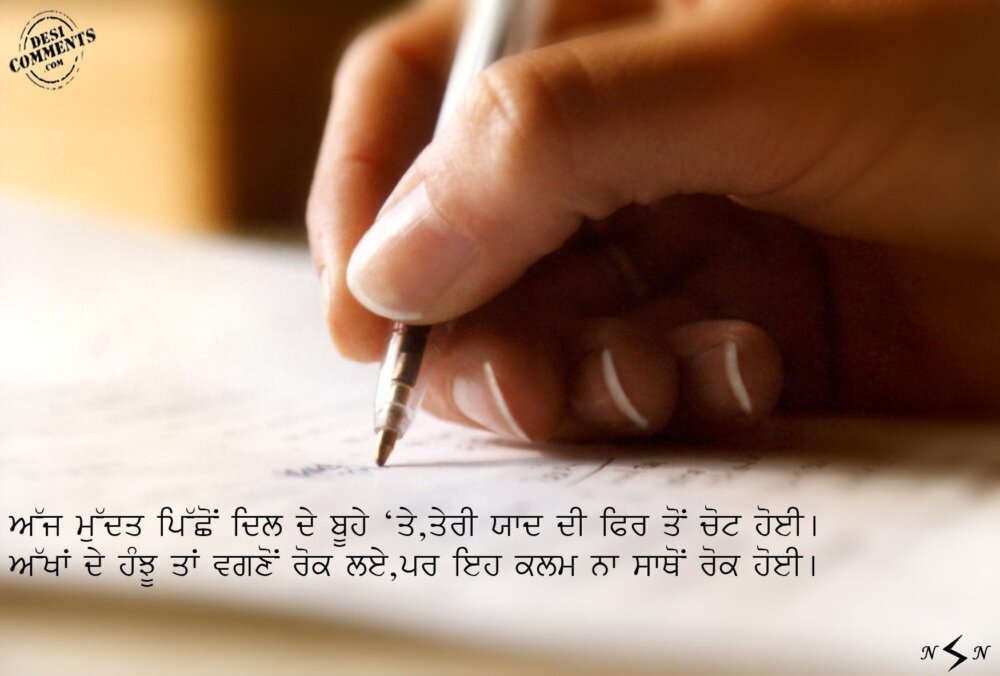 DESI
COMMENTS
.COM
ਅੱਜ ਮੁੱਦਤ ਪਿੱਛੋਂ ਦਿਲ ਦੇ ਬੂਹੇ ‘ਤੇ,ਤੇਰੀ ਯਾਦ ਦੀ ਫਿਰ ਤੋਂ ਚੋਟ ਹੋਈ।
ਅੱਖਾਂ ਦੇ ਹੰਝੂ ਤਾਂ ਵਗਣੋਂ ਰੋਕ ਲਏ,ਪਰ ਇਹ ਕਲਮ ਨਾ ਸਾਥੋਂ ਰੋਕ ਹੋਈ।
N N